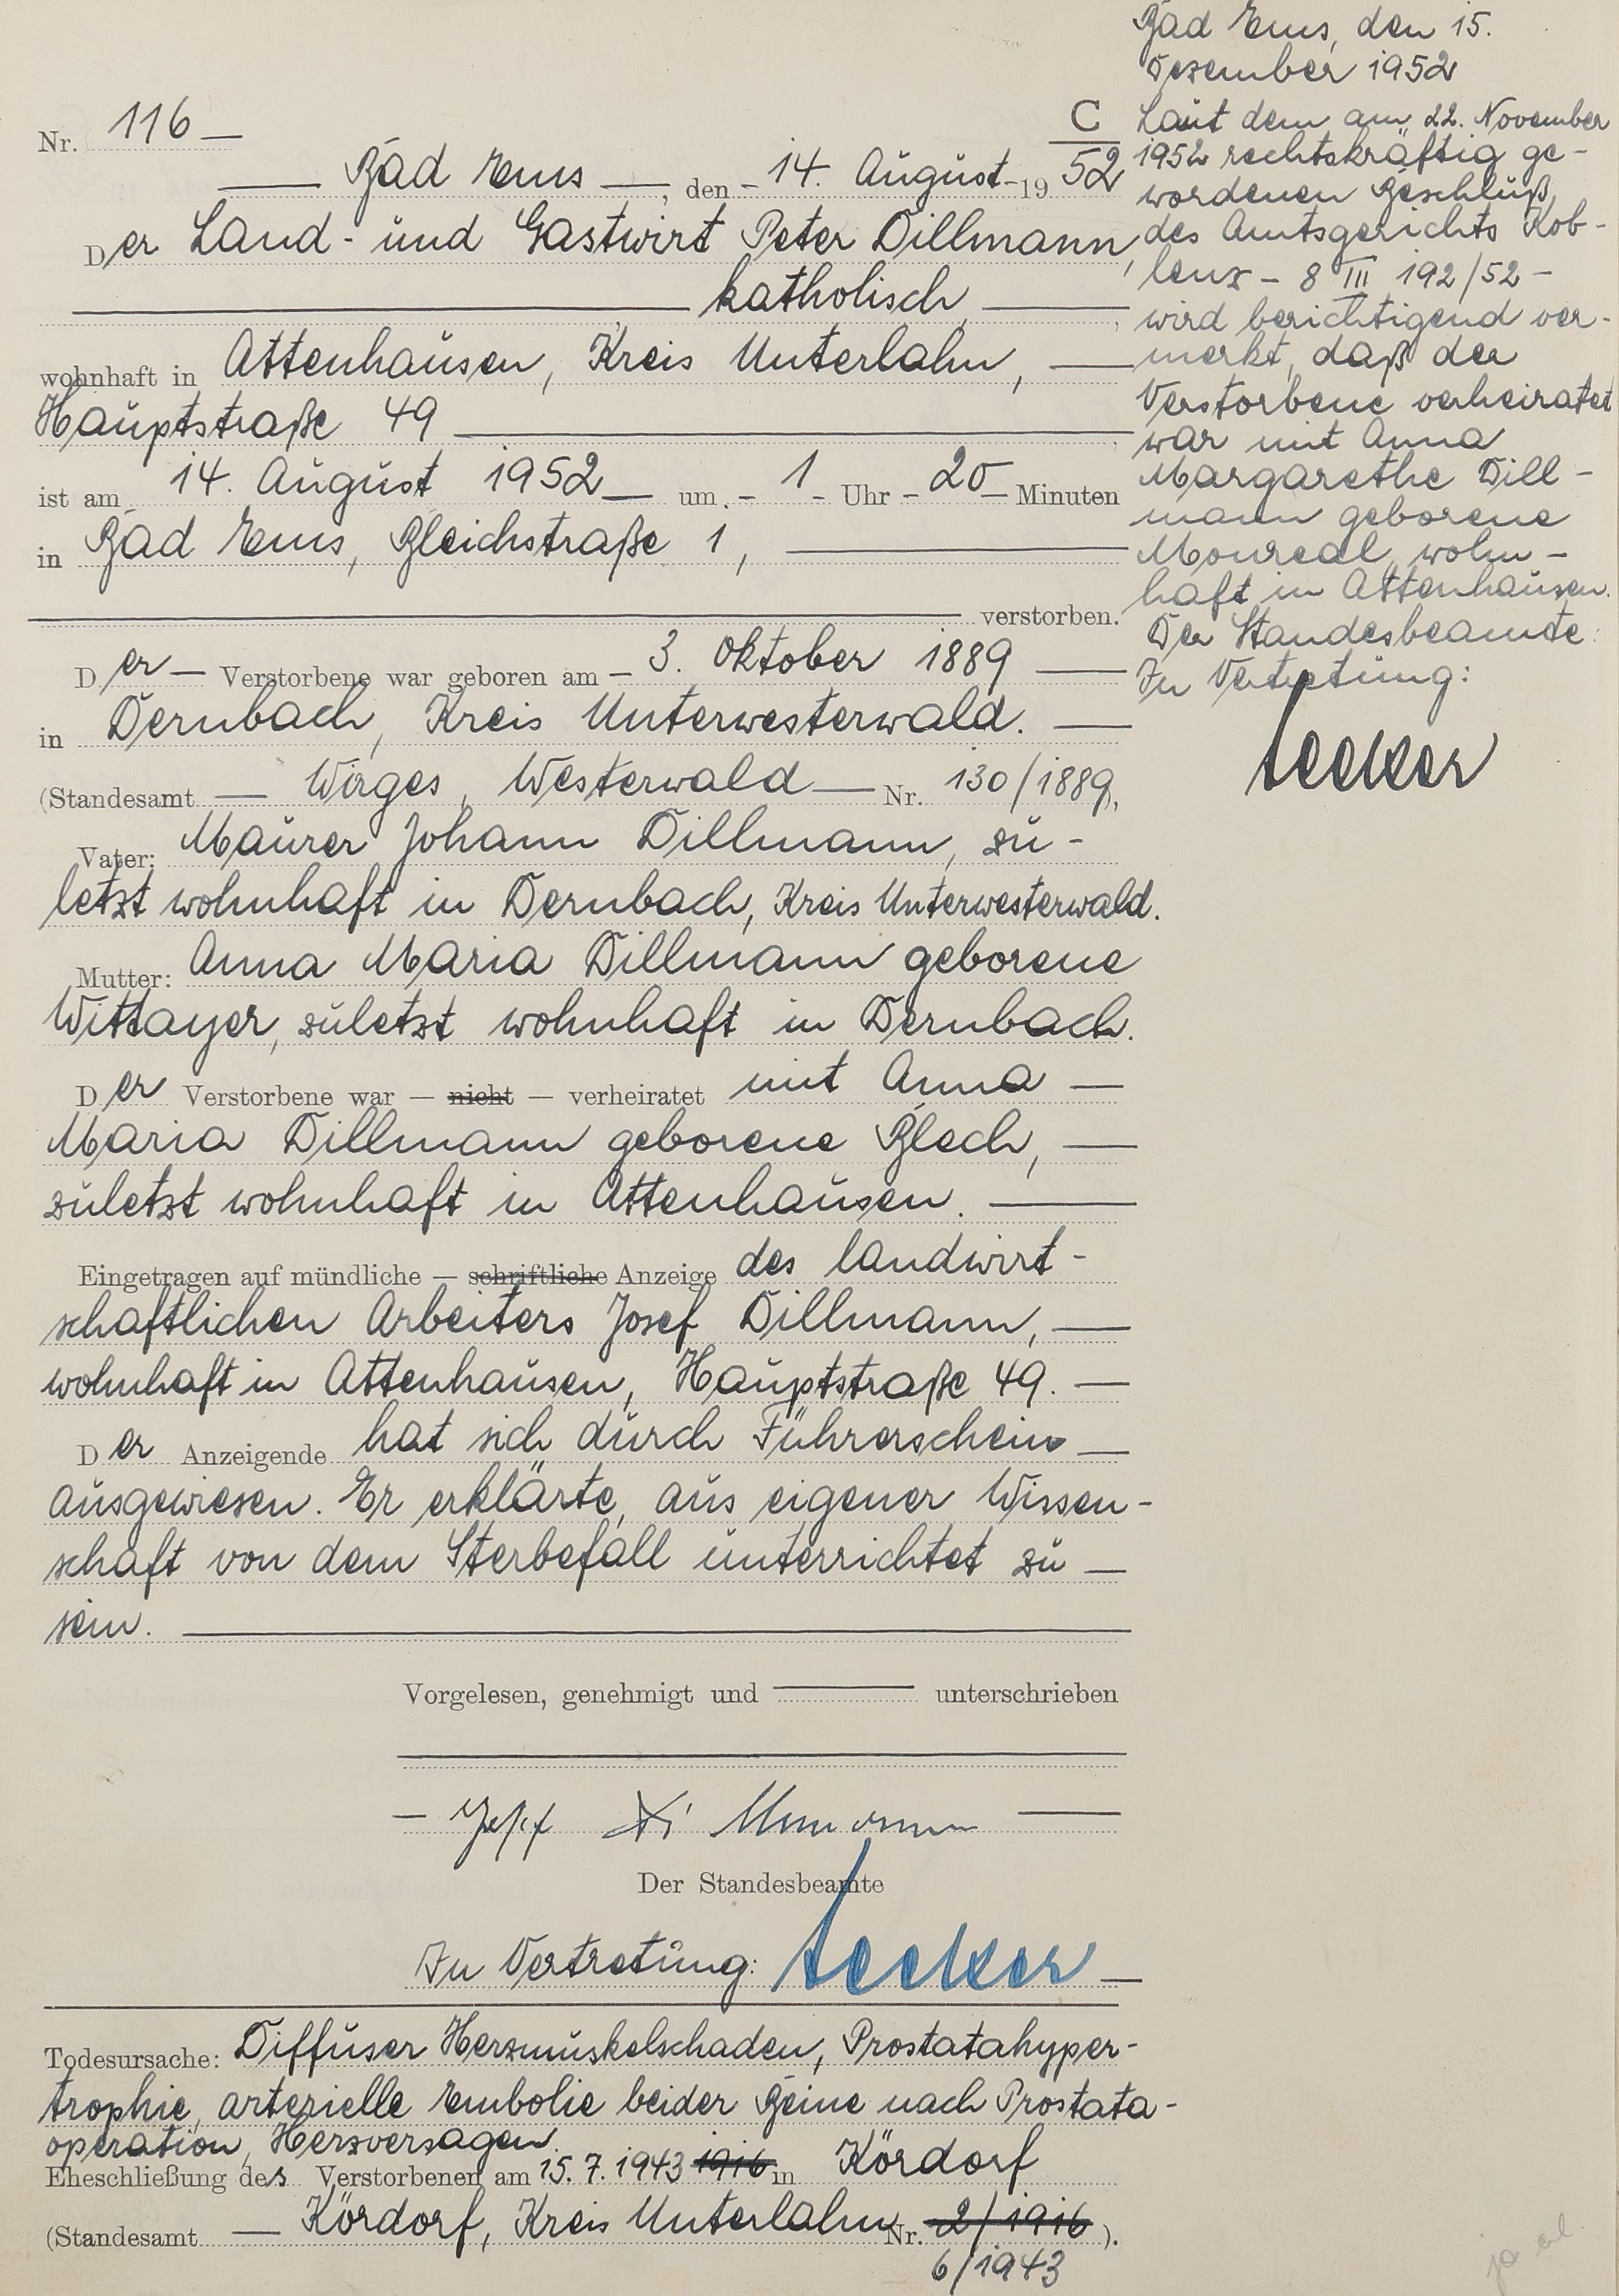 Nr. 116 —
C
Bad Ems, den 14. August 1952
Der Land- und Gastwirt Peter Dillmann,
katholisch
wohnhaft in Attenhausen, Kreis Unterlahn,
Hauptstraße 49
ist am 14. August 1952 um - 1 - Uhr - 20 - Minuten
in Bad Ems, Bleichstraße 1,
verstorben.
Der Verstorbene war geboren am 3. Oktober 1889
in Dernbach, Kreis Unterwesterwald.
(Standesamt Wirges, Westerwald Nr. 130/1889),
Vater: Maurer Johann Dillmann, zu-
letzt wohnhaft in Dernbach, Kreis Unterwesterwald.
Mutter: Anna Maria Dillmann geborene
Wittayer, zuletzt wohnhaft in Dernbach.
Der Verstorbene war — nicht — verheiratet mit Anna
Maria Dillmann geborene Blech,
zuletzt wohnhaft in Attenhausen.
Eingetragen auf mündliche — schriftliche Anzeige des landwirt-
schaftlichen Arbeiters Josef Dillmann,
wohnhaft in Attenhausen, Hauptstraße 49.
Der Anzeigende hat sich durch Führerschein
ausgewiesen. Er erklärte, aus eigener Wissen-
schaft von dem Sterbefall unterrichtet zu
sein.
Vorgelesen, genehmigt und unterschrieben
Der Standesbeamte
In Vertretung:
Todesursache: Diffuser Herzmuskelschaden, Prostatahyper-
trophie, arterielle Embolie beider Beine nach Prostata-
operation, Herzversagen.
Eheschließung des Verstorbenen am 15.7.1943 1916 in Kördorf
(Standesamt Kördorf, Kreis Unterlahn Nr. 2/1916 ).
6/1943
Bad Ems, den 15.
Dezember 1952
Laut dem am 22. November
1952 rechtskräftig ge-
wordenen Beschluß
des Amtsgerichts Kob-
lenz - 8 III 192/52 -
wird berichtigend ver-
merkt, daß der
Verstorbene verheiratet
war mit Anna
Margarethe Dill-
mann geborene
Monreal, wohn-
haft in Attenhausen.
Der Standesbeamte:
In Vertretung: